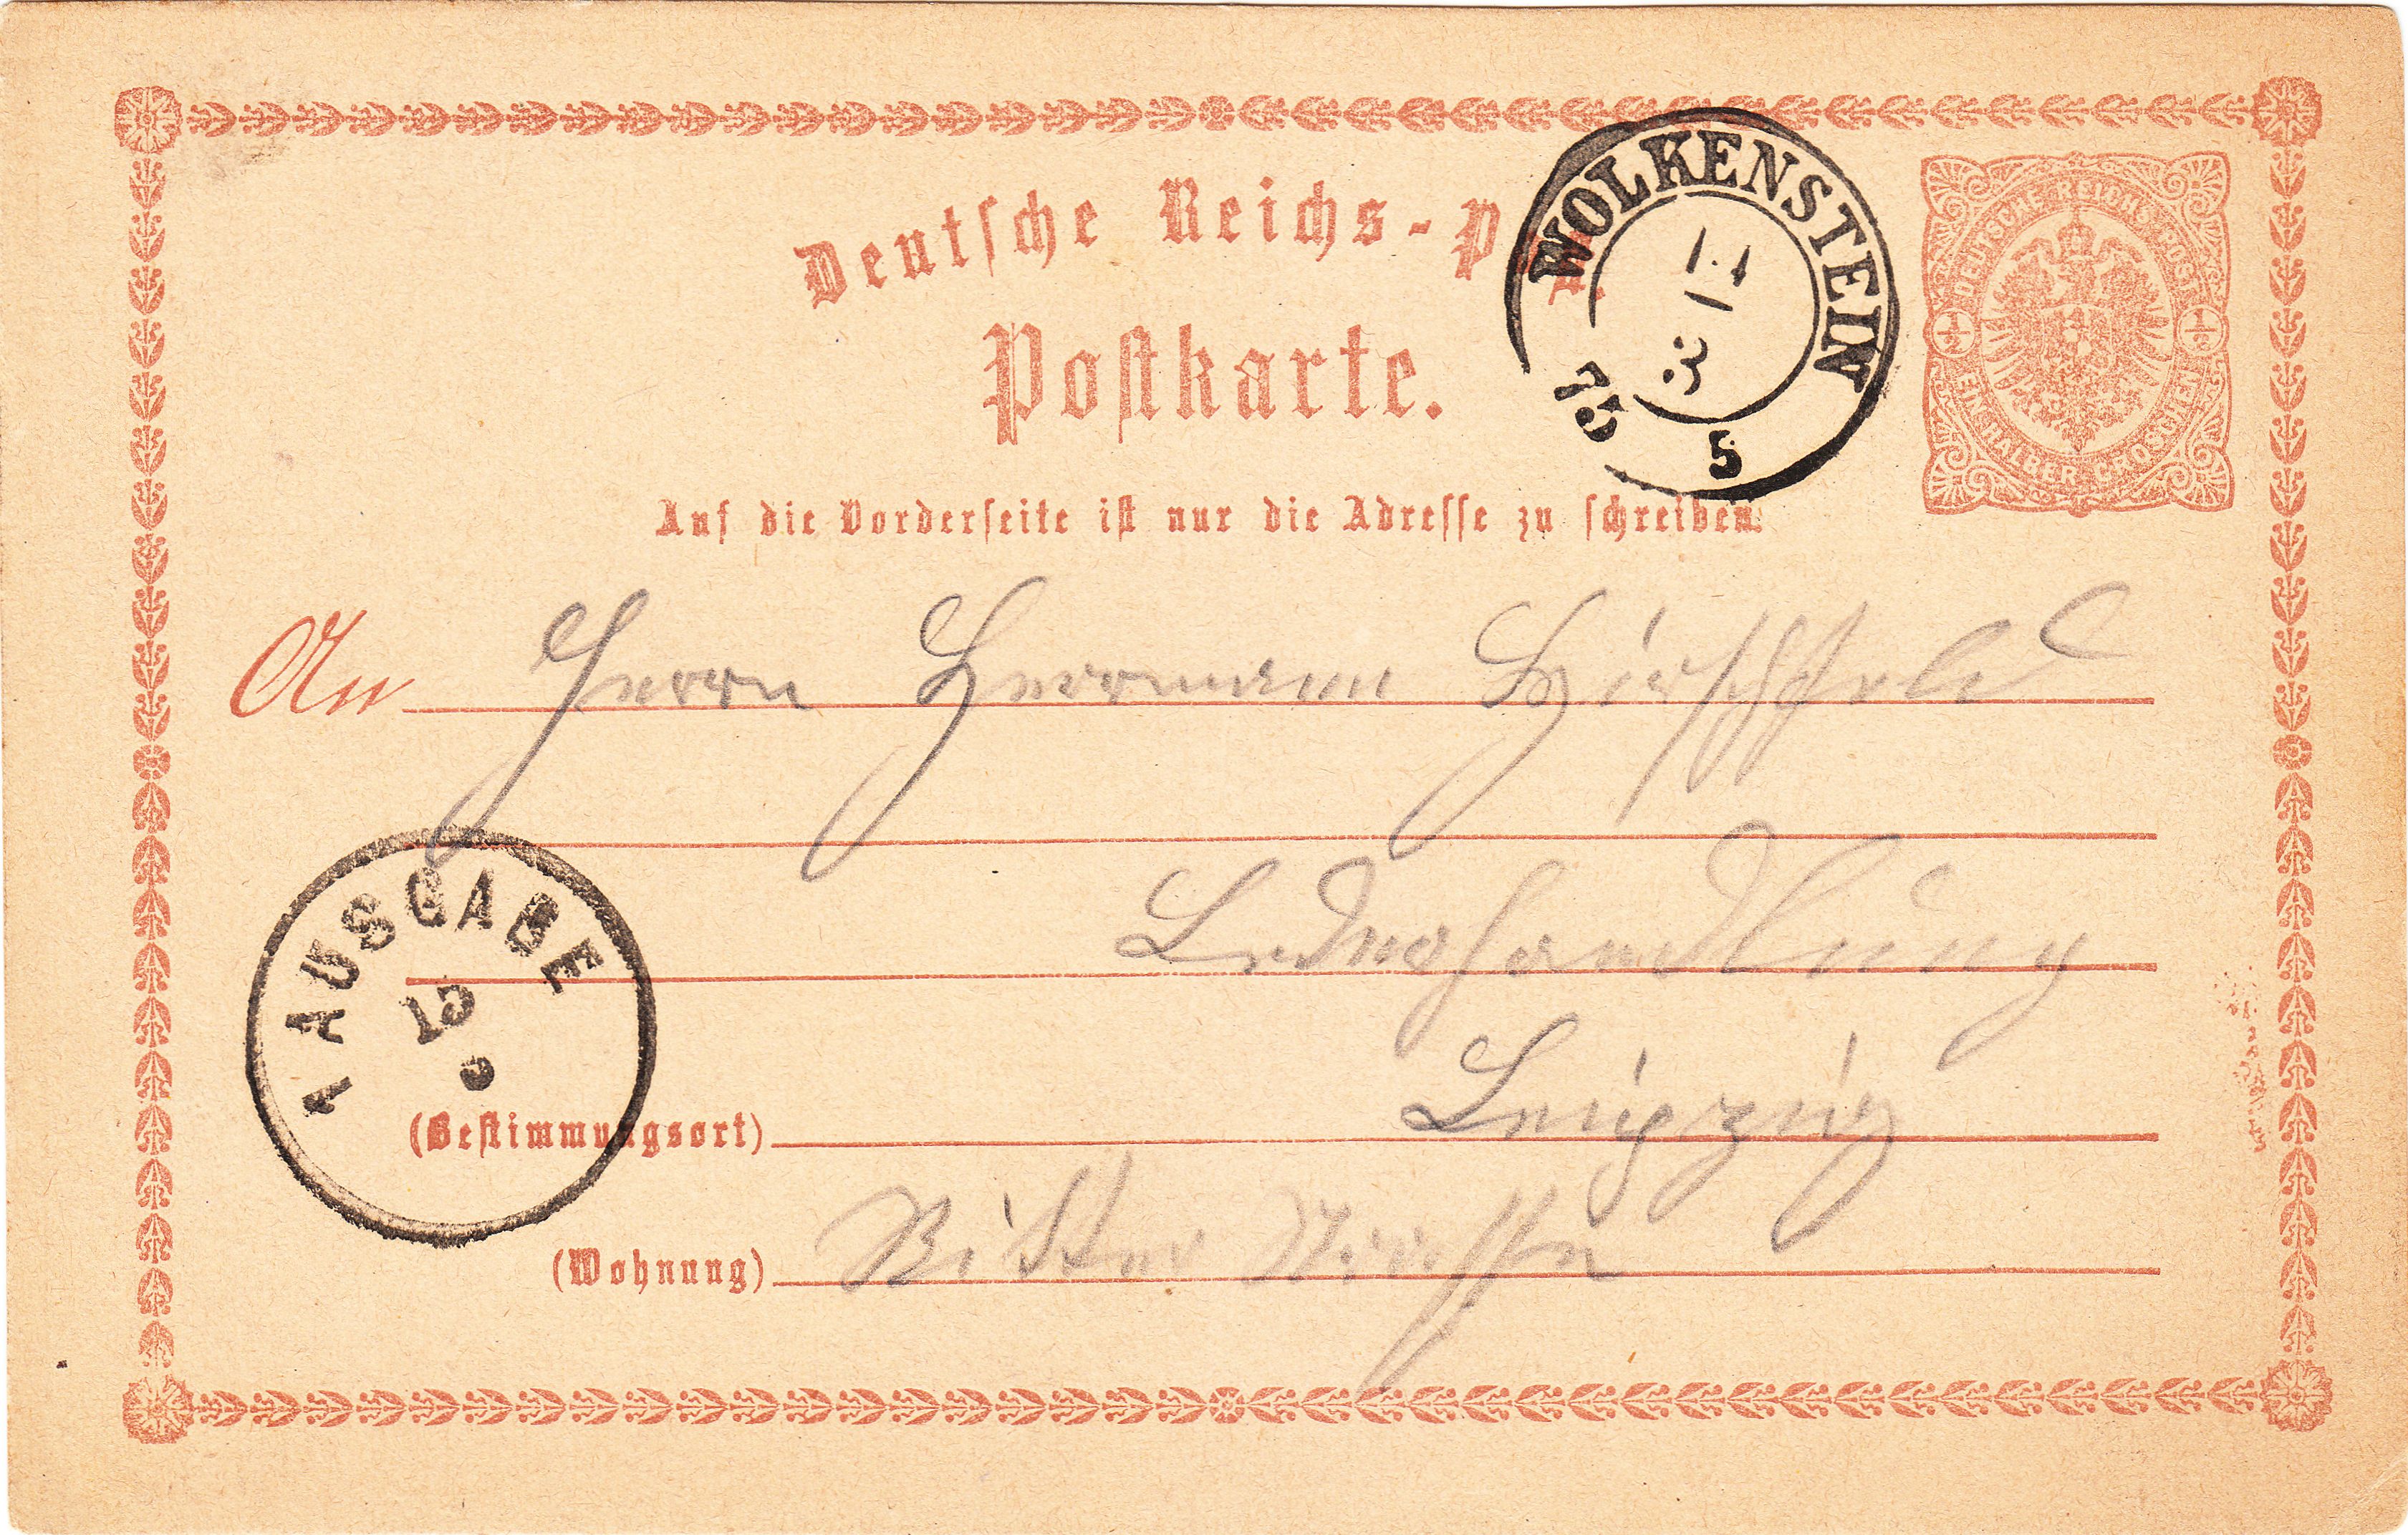 Deutsche Reichs-P
Postkarte.
WOLKENSTEIN
14
3
75
5
DEUTSCHE REICHS-POST
1/2 1/2
EIN HALBER GROSCHEN
Auf die Vorderseite ist nur die Adresse zu schreiben.
An Herrn Herrmann Hirschfeld
Lederhandlung
AUSGABE
15
(Bestimmungsort) Leipzig
(Wohnung) Ritter Strasse